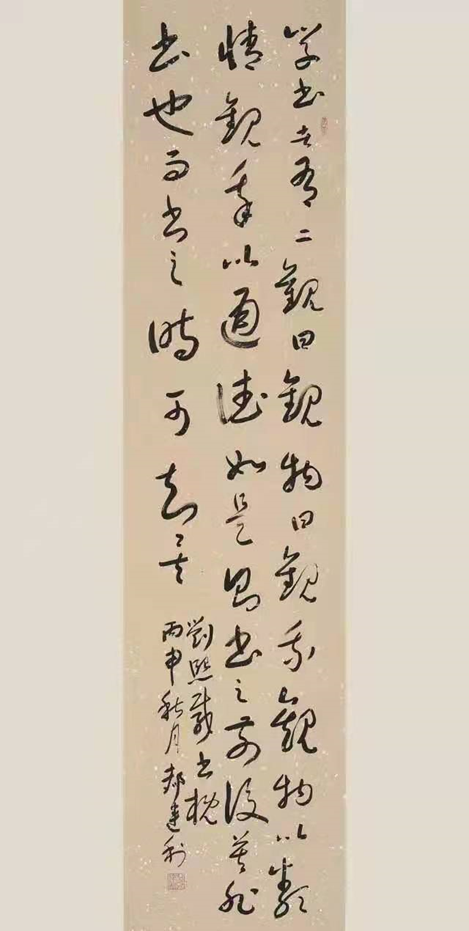 学书者有二观曰观物曰观我观物以类
情观我以通德如是则书之前后莫非
书也而书之时可知矣
劉熙載書概
丙申秋月郝建利